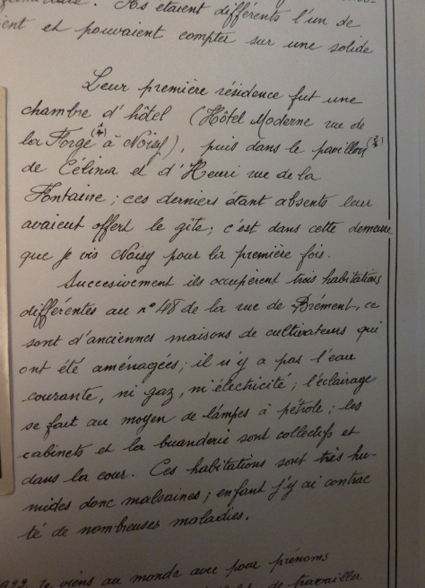 Ils étaient différents l'un de
et pouvaient compter sur une solide
Leur première résidence fut une
chambre d'hôtel (Hôtel Moderne rue de
la Forge (*) à Noisy), puis dans le pavillon (*)
de Célina et d'Henri rue de la
Fontaine ; ces derniers étant absents leur
avaient offert le gîte ; c'est dans cette demeure
que je vis Noisy pour la première fois.
Succesivement ils occupèrent trois habitations
différentes au n° 48 de la rue de Brément, ce
sont d'anciennes maisons de cultivateurs qui
ont été aménagées ; il n'y a pas l'eau
courante, ni gaz, ni électricité ; l'éclairage
se fait au moyen de lampes à pétrole ; les
cabinets et la buanderie sont collectifs et
dans la cour. Ces habitations sont très hu-
mides donc malsaines ; enfant j'y ai contrac
té de nombreuses maladies.
Je viens au monde avec pour prénoms
de travailler